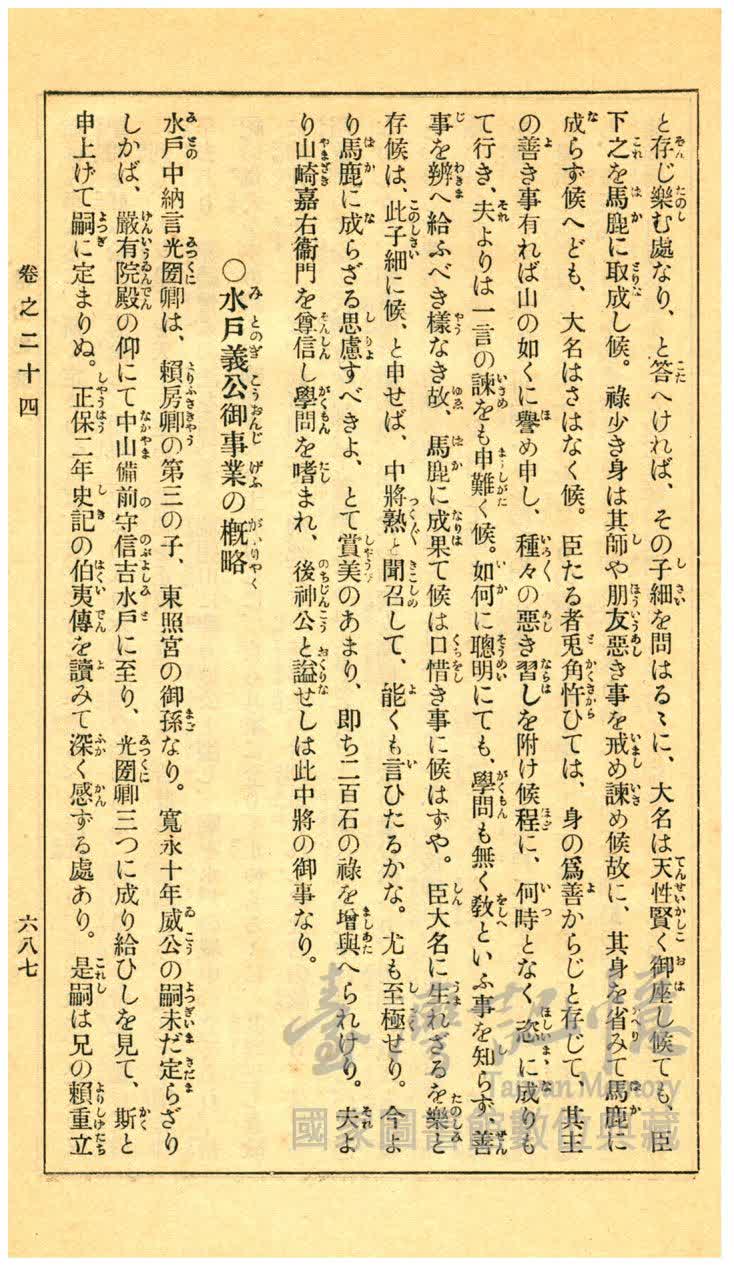 と存じ樂む處なり、と答へければ、その子細を問はるゝに、大名は天性賢く御座し候ても、臣
下之を馬鹿に取成し候。祿少き身は其師や朋友惡き事を戒め諫め候故に、其身を省みて馬鹿に
成らず候へども、大名はさはなく候。臣たる者兎角忤ひては、身の爲善からじと存じて、其主
の善き事有れば山の如くに譽め申し、種々の惡き習しを附け候程に、何時となく恣に成りも
て行き、夫よりは一言の諫をも申難く候。如何に聰明にても、學問も無く敎といふ事を知らず、善
事を辨へ給ふべき樣なき故、馬鹿に成果て候は口惜き事に候はずや。臣大名に生れざるを樂と
存候は、此子細に候、と申せば、中將熟と聞召して、能くも言ひたるかな。尤も至極せり。今よ
り馬鹿に成らざる思慮すべきよ、とて賞美のあまり、即ち二百石の祿を增與へられけり。夫よ
り山崎嘉右衞門を尊信し學問を嗜まれ、後神公と謚せしは此中將の御事なり。
〇水戶義公御事業の槪略
水戶中納言光圀卿は、賴房卿の第三の子、東照宮の御孫なり。寬永十年威公の嗣未だ定らざり
しかば、嚴有院殿の仰にて中山備前守信吉水戶に至り、光圀卿三つに成り給ひしを見て、斯と
申上げて嗣に定まりぬ。正保二年史記の伯夷傳を讀みて深く感ずる處あり。是嗣は兄の賴重立
卷之二十四
六八七
臺灣記憶
Taiwan Memory
國家圖書館數位典藏